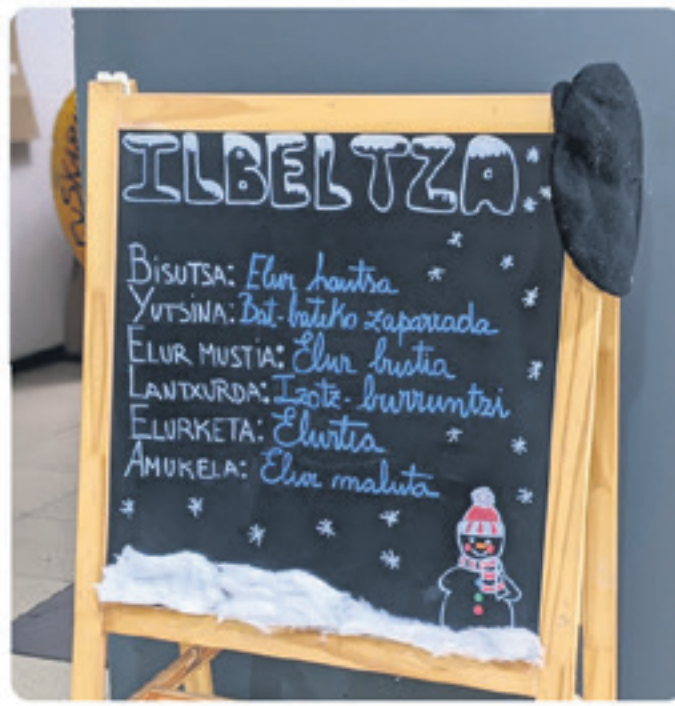 ILBELTZA
BISUTSA: Elur hautsa
YUTSINA: Bat-bateko zaparrada
ELUR MUSTIA: Elur bustia
LANTXURDA: Izotz-burruntzi
ELURKETA: Elurtia
AMUKELA: Elur maluta